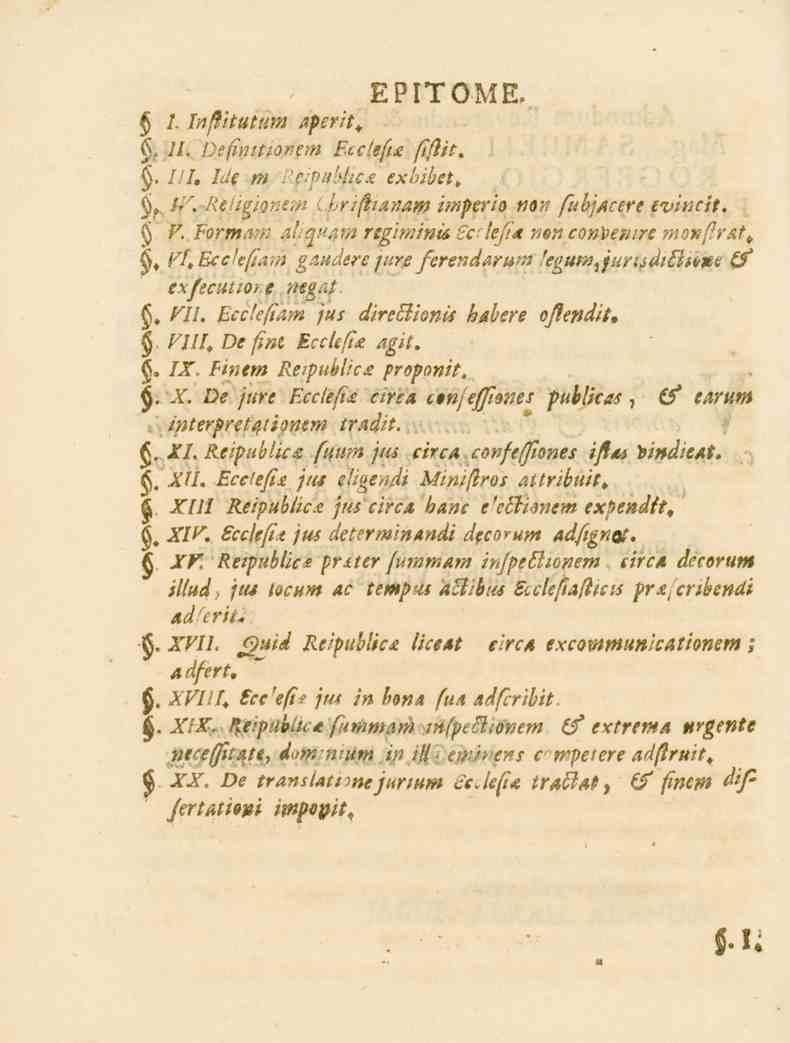 EPITOME.
§ I. Inſtitutum aperit.
§. II. Definitionem Eccleſiæ ſiſtit.
§. III. Ide m Reipublicæ exhibet.
§. IV. Religionem Chriſtianam imperio non ſubjacere evincit.
§ V. Formam aliquam regiminis Eccleſiæ non convenire monſtrat.
§. VI. Eccleſiam gaudere jure ferendarum legum, jurisdictione &
exſecutione negat.
§. VII. Eccleſiam jus directionis habere oſtendit.
§. VIII. De fine Eccleſiæ agit.
§. IX. Finem Reipublicæ proponit.
§. X. De jure Eccleſiæ circa confeſſiones publicas, & earum
interpretationem tradit.
§. XI. Reipublicæ ſuum jus circa confeſſiones iſtas vindicat.
§. XII. Eccleſiæ jus eligendi Miniſtros attribuit.
§. XIII Reipublicæ jus circa hanc electionem expendit.
§. XIV. Eccleſiæ jus determinandi decorum adſignat.
§. XV. Reipublicæ præter ſummam inſpectionem circa decorum
illud, jus locum ac tempus actibus Eccleſiaſticis præſcribendi
adſerit.
§. XVII. Quid Reipublicæ liceat circa excommunicationem;
adfert.
§. XVIII. Eccleſiæ jus in bona ſua adſcribit.
§. XIX. Reipublicæ ſummam inſpectionem & extrema urgente
neceſſitate, dominium in illa eminens competere adſtruit.
§. XX. De translatione jurium Eccleſiæ tractat, & finem diſ-
ſertationi imponit.
§. I.